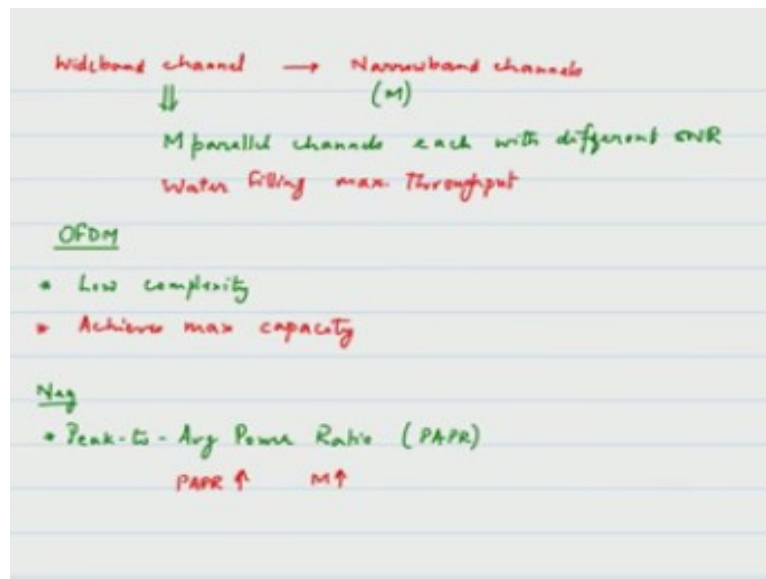 Wideband channel → Narrowband channels
⇓ (M)
M parallel channels each with different SNR
Water Filling max. Throughput
OFDM
* Low complexity
* Achieves max capacity
Neg
* Peak-to-Avg Power Ratio (PAPR)
PAPR ↑ M↑